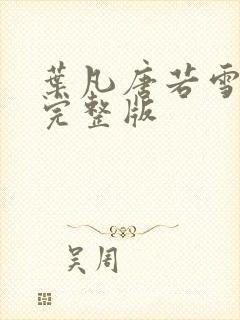 葉凡唐若雪
完整版
吴周